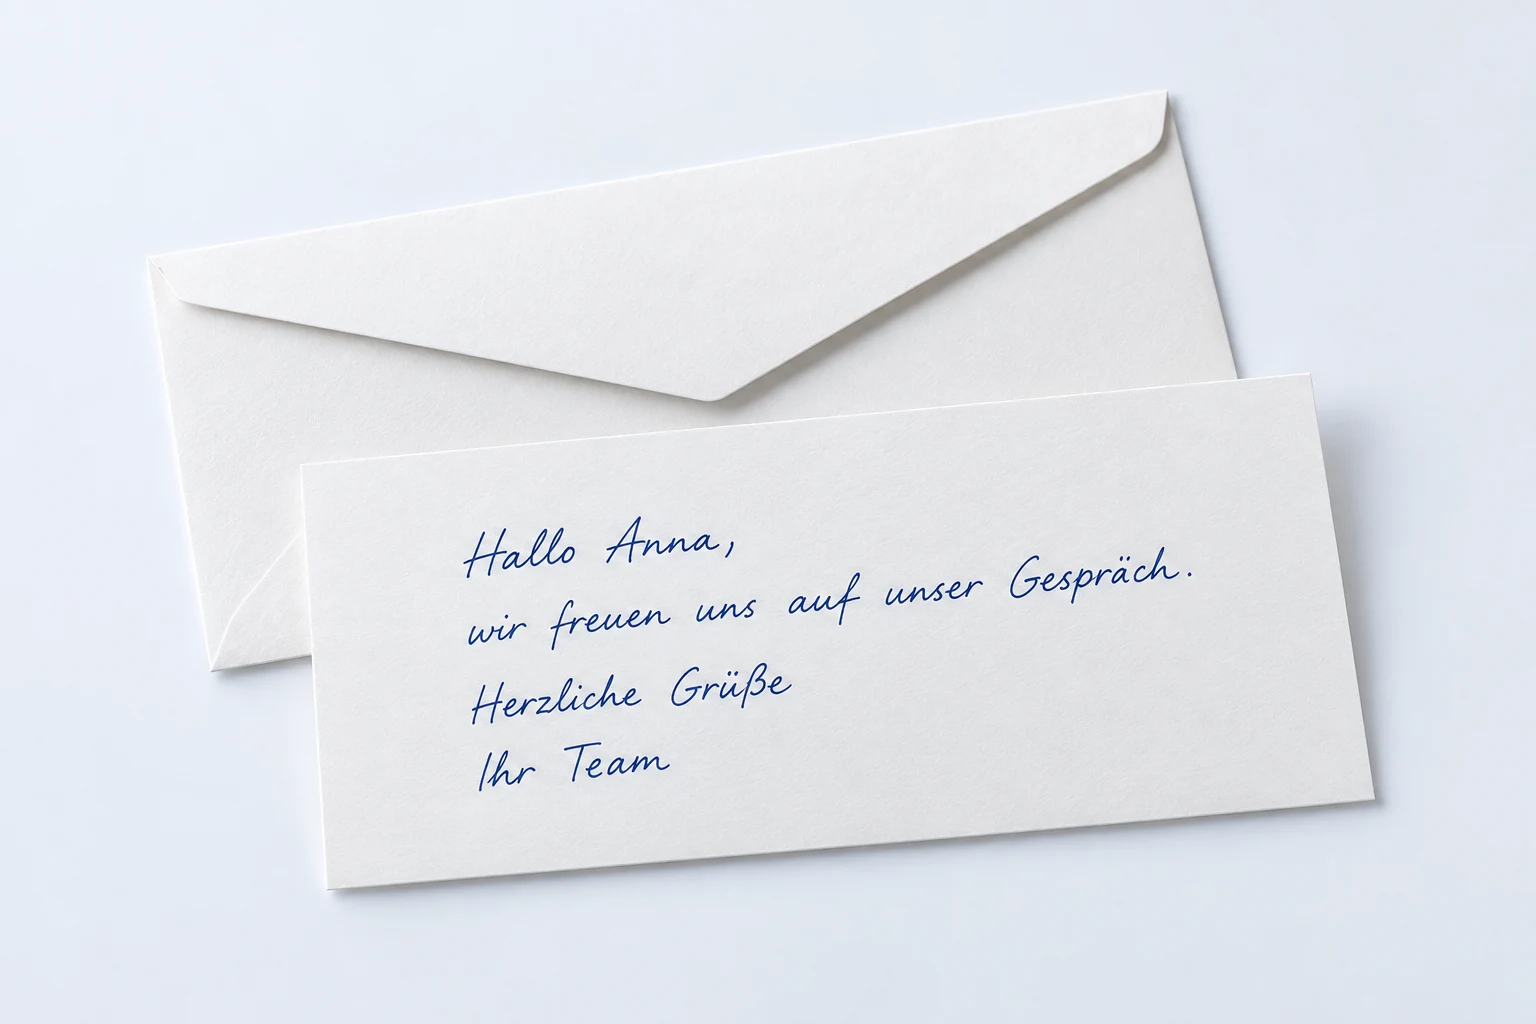 Hallo Anna,
wir freuen uns auf unser Gespräch.
Herzliche Grüße
Ihr Team